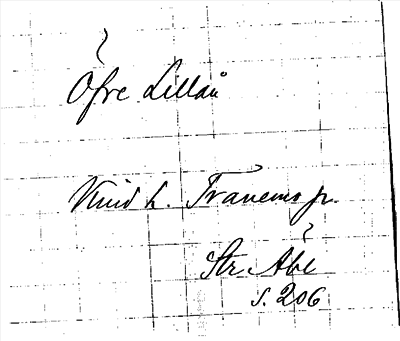 Öfre Lillån
Kind h. Tranemo p.
Str. Abl
s. 206